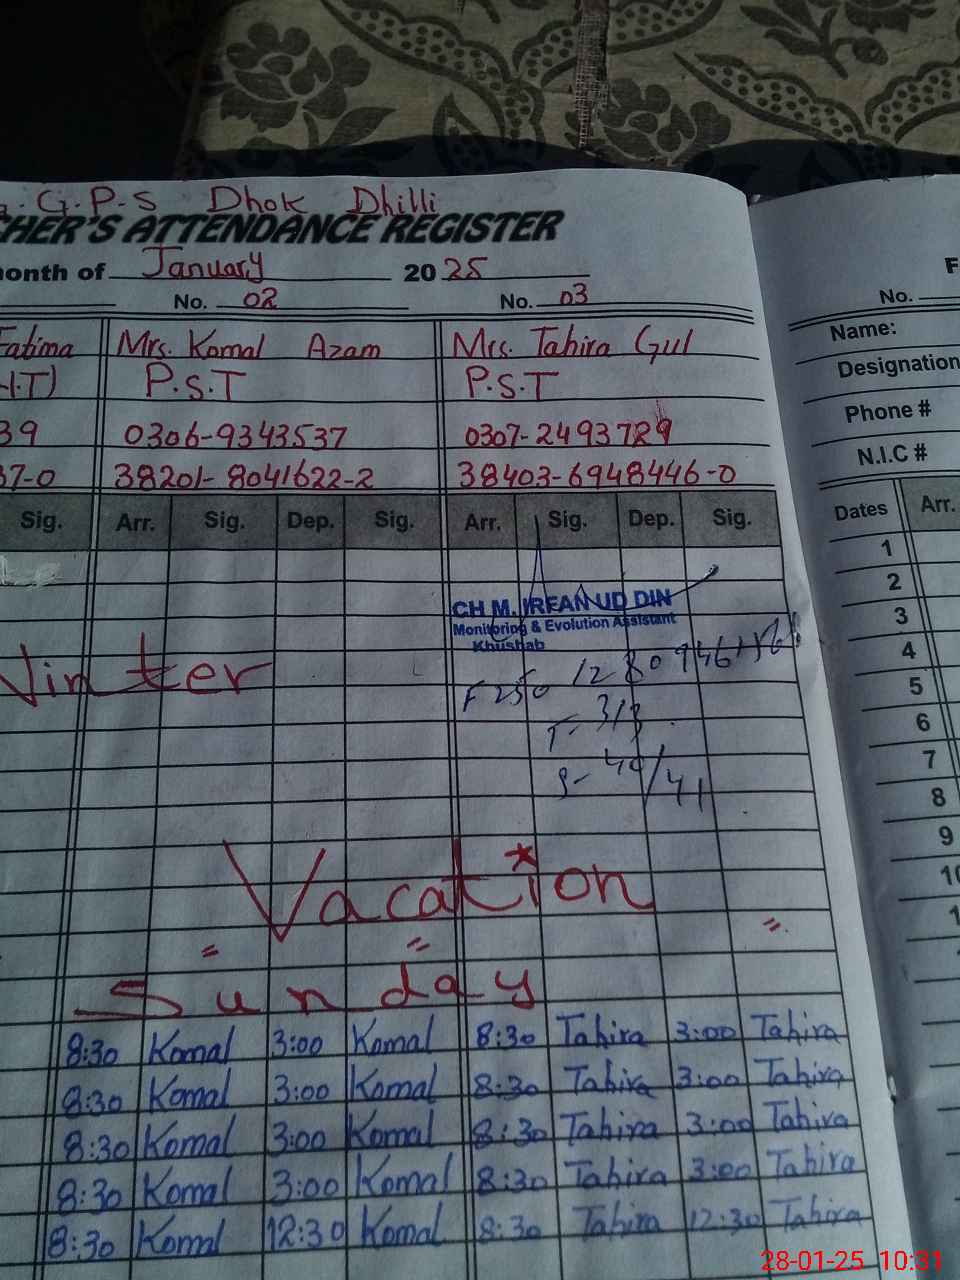 G.P.S Dhok Dhilli
CHER'S ATTENDANCE REGISTER
month of January 2025
No. 02 No. 03
Fatima Mrs. Komal Azam Mrs. Tahira Gul
P.S.T P.S.T
39 0306-9343537 0307-2493729
37-0 38201-8041622-2 38403-6948446-0
Sig. Arr. Sig. Dep. Sig. Arr. Sig. Dep. Sig.
CH M. IRFAN UD DIN
Monitoring & Evolution Assistant
Khushab
Winter
F 250
T- 313
S- 40/41
Vacation
Sunday
8:30 Komal 3:00 Komal 8:30 Tahira 3:00 Tahira
8:30 Komal 3:00 Komal 8:30 Tahira 3:00 Tahira
8:30 Komal 3:00 Komal 8:30 Tahira 3:00 Tahira
8:30 Komal 3:00 Komal 8:30 Tahira 3:00 Tahira
8:30 Komal 12:30 Komal 8:30 Tahira 12:30 Tahira
F
No.
Name:
Designation
Phone #
N.I.C #
Dates Arr.
1
2
3
4
5
6
7
8
9
10
1
28-01-25 10:31